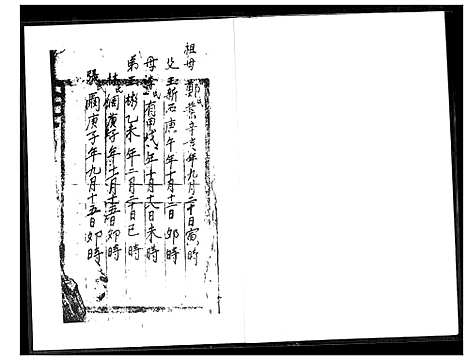 祖母 鄭業辛亥年九月二十日寅時
父 王新石庚午年十月十二日卯時
母 氏有甲戌年十月十八日未時
弟 王彬乙未年二月二十日巳時
林氏個庚子年十二月十五日卯時
張氏爾庚子年九月十五日卯時